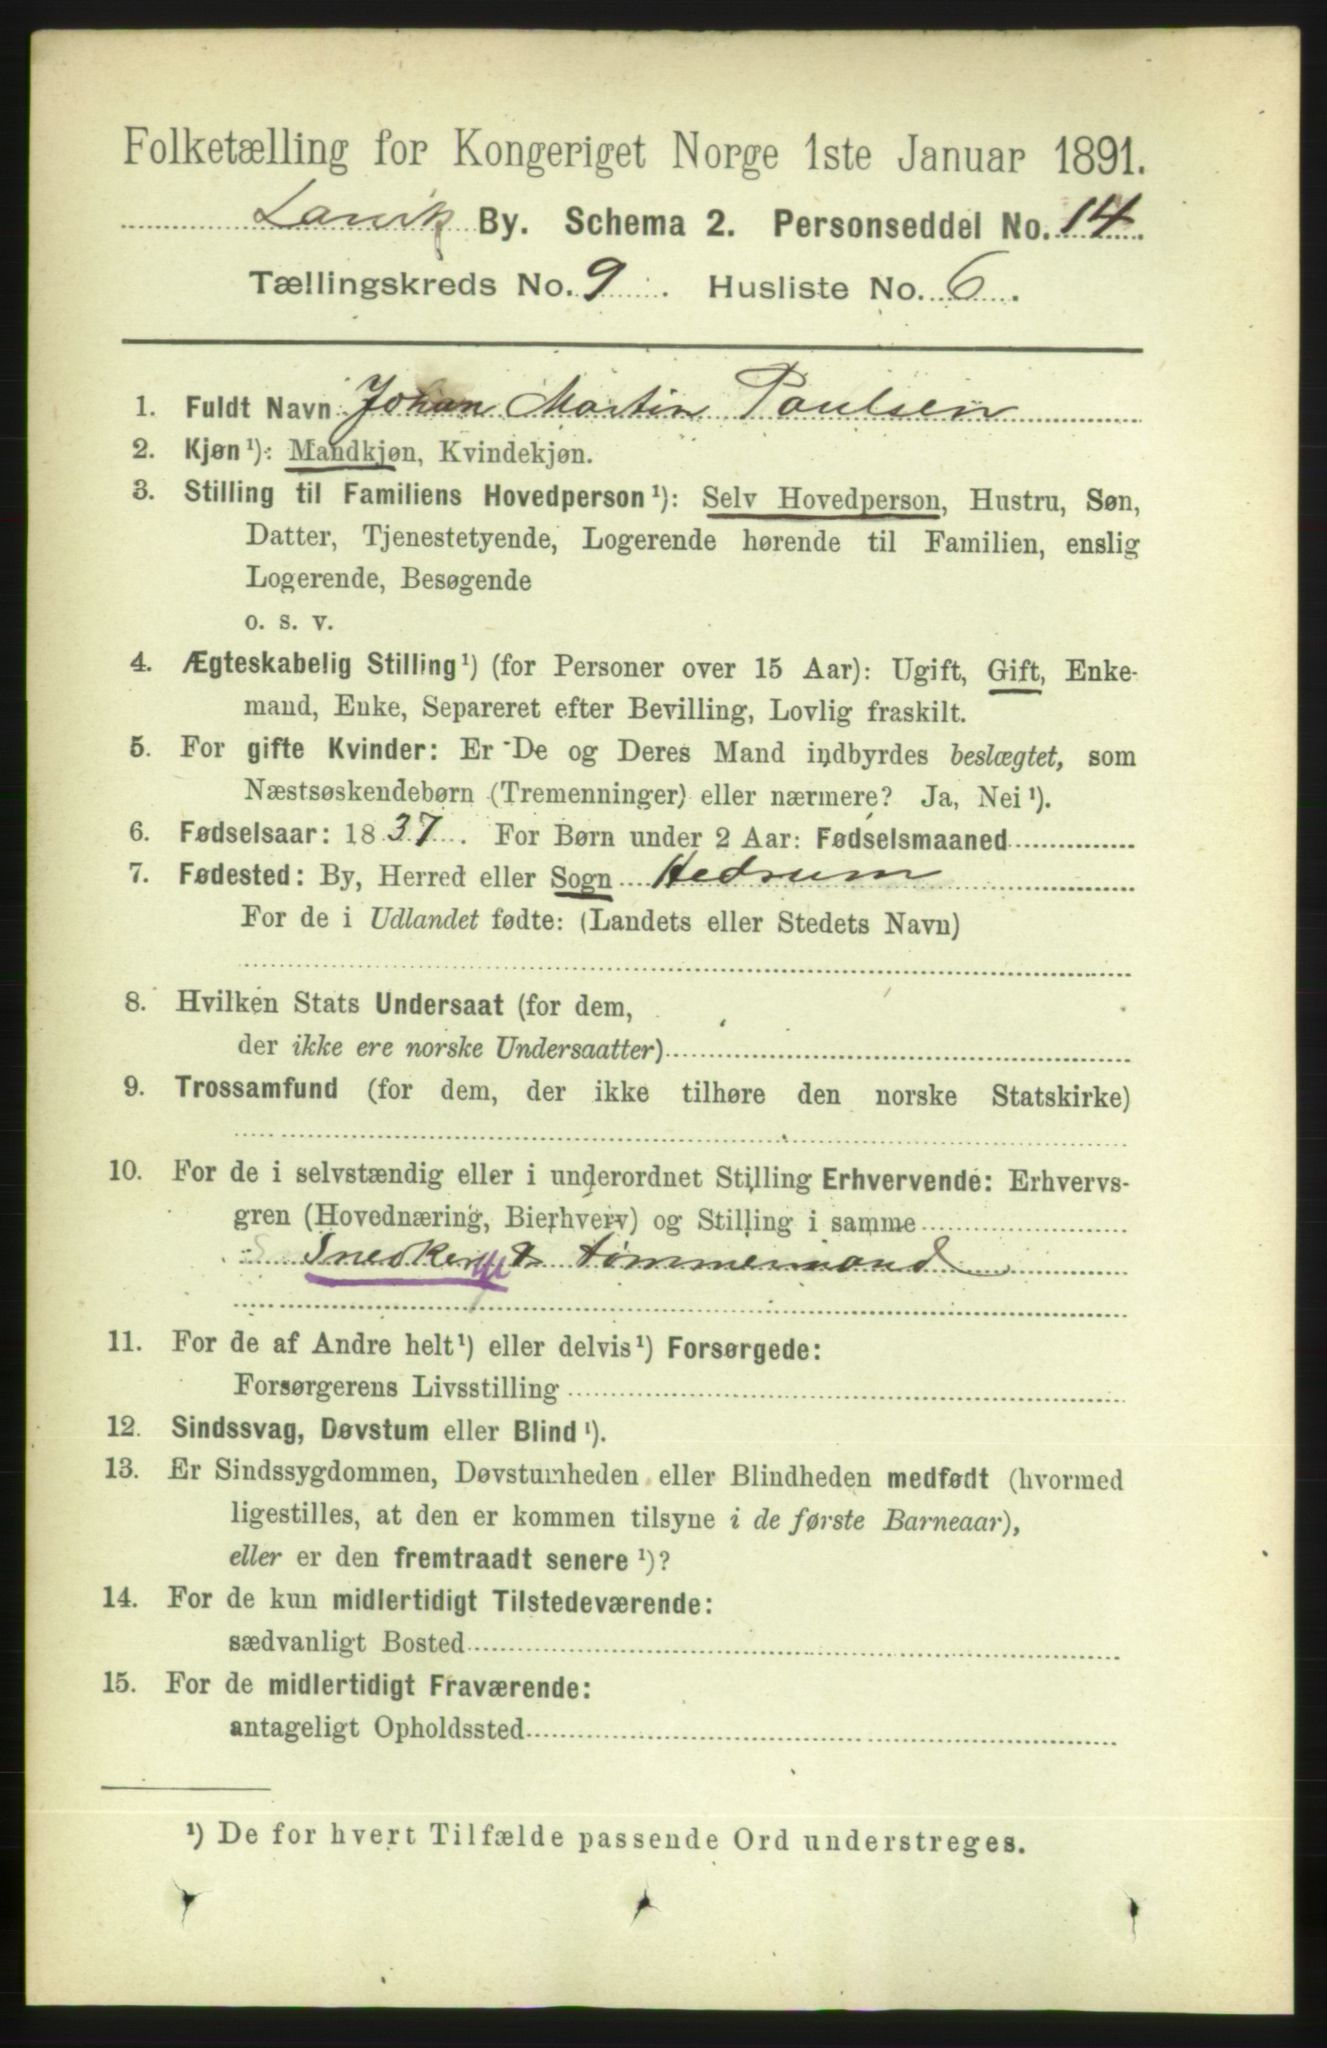 Folketælling for Kongeriget Norge 1ste Januar 1891.
Larvik By. Schema 2. Personseddel No. 14.
Tællingskreds No. 9. Husliste No. 6.
1. Fuldt Navn Johan Martin Paulsen
2. Kjøn¹): Mandkjøn, Kvindekjøn.
3. Stilling til Familiens Hovedperson¹): Selv Hovedperson, Hustru, Søn,
Datter, Tjenestetyende, Logerende hørende til Familien, enslig
Logerende, Besøgende
o. s. v.
4. Ægteskabelig Stilling¹) (for Personer over 15 Aar): Ugift, Gift, Enke-
mand, Enke, Separeret efter Bevilling, Lovlig fraskilt.
5. For gifte Kvinder: Er De og Deres Mand indbyrdes beslægtet, som
Næstsøskendebørn (Tremenninger) eller nærmere? Ja, Nei¹).
6. Fødselsaar: 1837. For Børn under 2 Aar: Fødselsmaaned
7. Fødested: By, Herred eller Sogn Hedrum
For de i Udlandet fødte: (Landets eller Stedets Navn)
8. Hvilken Stats Undersaat (for dem,
der ikke ere norske Undersaatter)
9. Trossamfund (for dem, der ikke tilhøre den norske Statskirke)
10. For de i selvstændig eller i underordnet Stilling Erhvervende: Erhvervs-
gren (Hovednæring, Bierhverv) og Stilling i samme
Snedker & tømmermand
11. For de af Andre helt¹) eller delvis¹) Forsørgede:
Forsørgerens Livsstilling
12. Sindssvag, Døvstum eller Blind¹).
13. Er Sindssygdommen, Døvstumheden eller Blindheden medfødt (hvormed
ligestilles, at den er kommen tilsyne i de første Barneaar),
eller er den fremtraadt senere¹)?
14. For de kun midlertidigt Tilstedeværende:
sædvanligt Bosted
15. For de midlertidigt Fraværende:
antageligt Opholdssted
¹) De for hvert Tilfælde passende Ord understreges.